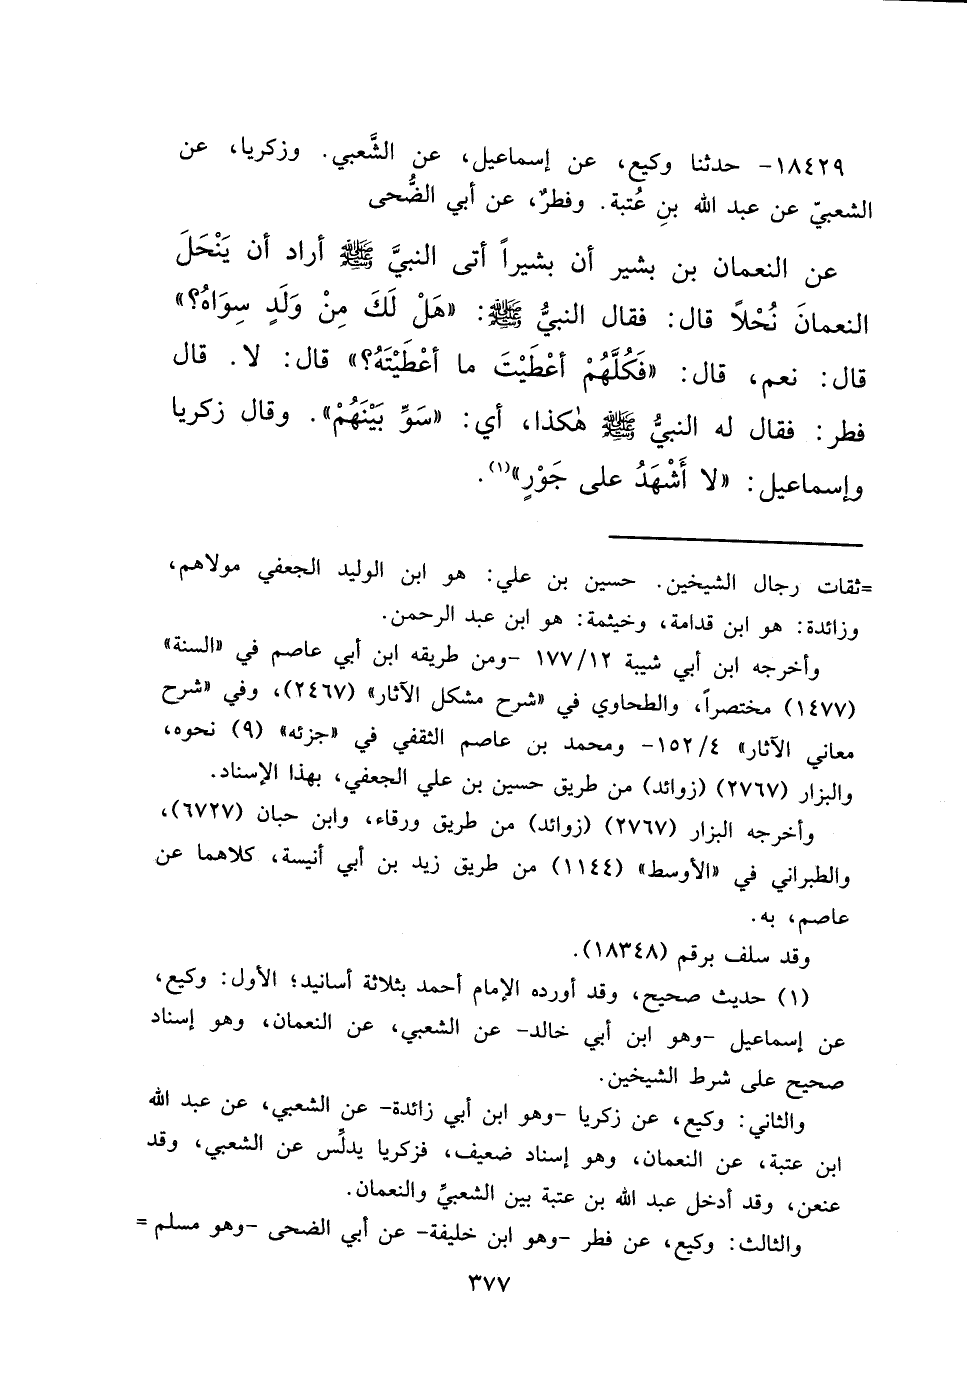 ١٨٤٢٩- حدثنا وكيع، عن إسماعيل، عن الشَّعبي. وزكريا، عن
الشعبيّ عن عبد الله بنِ عُتبة. وفطرٌ، عن أبي الضُّحى
عن النعمان بن بشير أن بشيراً أتى النبيَّ ﷺ أراد أن يَنْحَلَ
النعمانَ نُحْلاً قال: فقال النبيُّ ﷺ: «هَلْ لَكَ مِنْ وَلَدٍ سِوَاهُ؟»
قال: نعم، قال: «فَكُلَّهُمْ أعْطَيْتَ ما أعْطَيْتَهُ؟» قال: لا. قال
فطر: فقال له النبيُّ ﷺ هٰكذا، أي: «سَوِّ بَيْنَهُمْ». وقال زكريا
وإسماعيل: «لا أَشْهَدُ على جَوْرٍ»(١).
=ثقات رجال الشيخين. حسين بن علي: هو ابن الوليد الجعفي مولاهم،
وزائدة: هو ابن قدامة، وخيثمة: هو ابن عبد الرحمن.
وأخرجه ابن أبي شيبة ١٢/ ١٧٧ -ومن طريقه ابن أبي عاصم في «السنة»
(١٤٧٧) مختصراً، والطحاوي في «شرح مشكل الآثار» (٢٤٦٧)، وفي «شرح
معاني الآثار» ٤/ ١٥٢- ومحمد بن عاصم الثقفي في «جزئه» (٩) نحوه،
والبزار (٢٧٦٧) (زوائد) من طريق حسين بن علي الجعفي، بهذا الإسناد.
وأخرجه البزار (٢٧٦٧) (زوائد) من طريق ورقاء، وابن حبان (٦٧٢٧)،
والطبراني في «الأوسط» (١١٤٤) من طريق زيد بن أبي أنيسة، كلاهما عن
عاصم، به.
وقد سلف برقم (١٨٣٤٨).
(١) حديث صحيح، وقد أورده الإمام أحمد بثلاثة أسانيد؛ الأول: وكيع،
عن إسماعيل -وهو ابن أبي خالد- عن الشعبي، عن النعمان، وهو إسناد
صحيح على شرط الشيخين.
والثاني: وكيع، عن زكريا -وهو ابن أبي زائدة- عن الشعبي، عن عبد الله
ابن عتبة، عن النعمان، وهو إسناد ضعيف، فزكريا يدلِّس عن الشعبي، وقد
عنعن، وقد أدخل عبد الله بن عتبة بين الشعبيِّ والنعمان.
والثالث: وكيع، عن فطر -وهو ابن خليفة- عن أبي الضحى -وهو مسلم =
٣٧٧